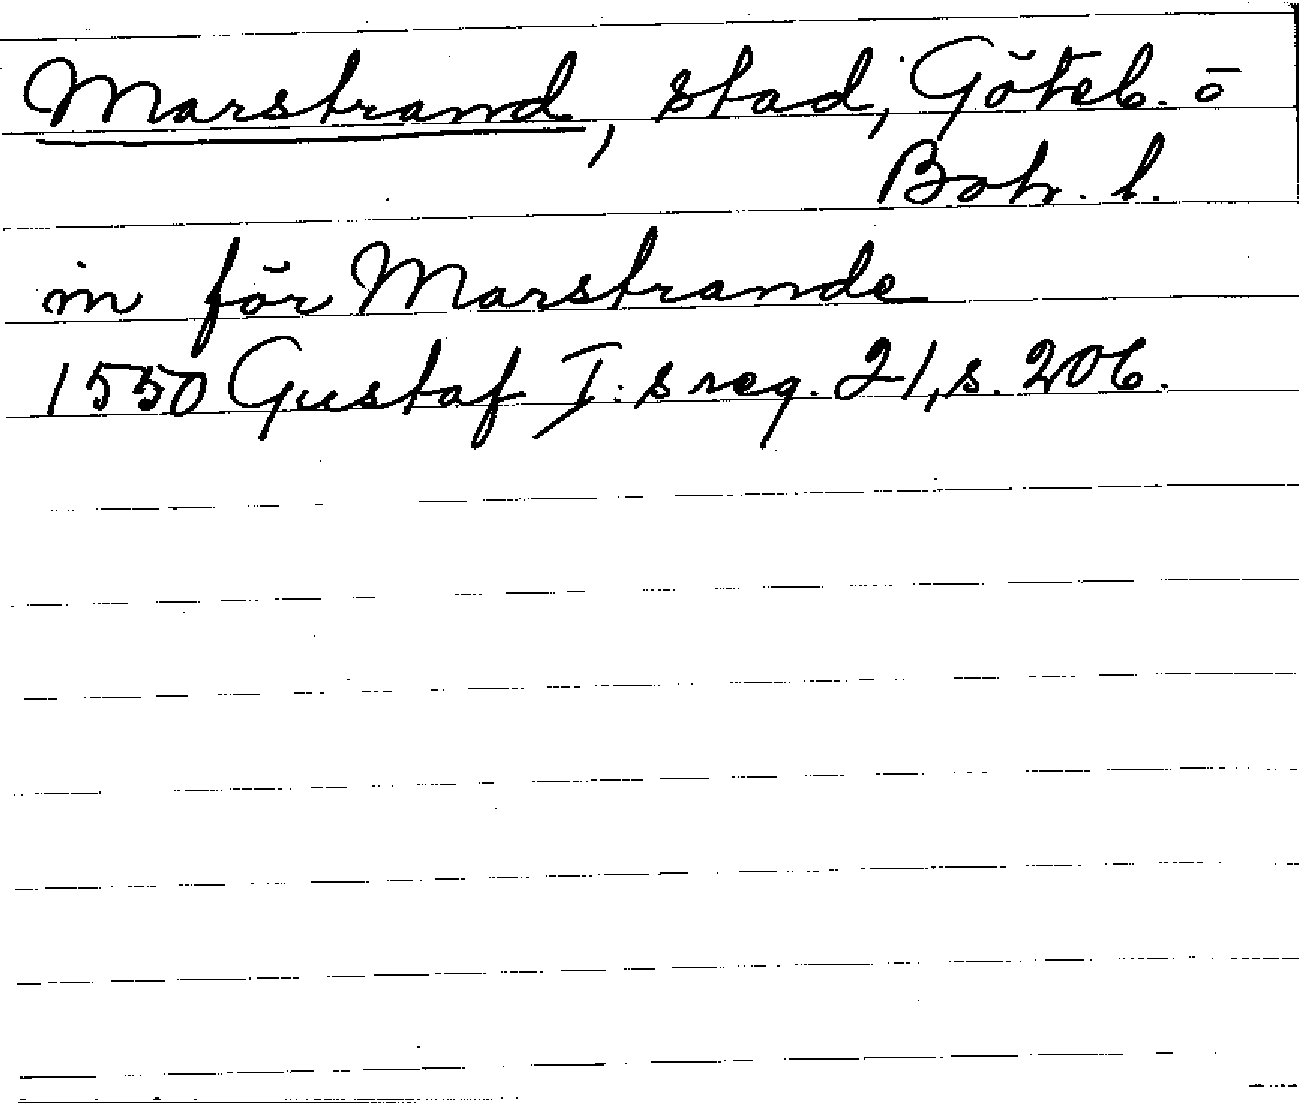 Marstrand, stad, Göteb. o
Boh. l.
in för Marstrande
1550 Gustaf I:s reg. 21, s. 206.